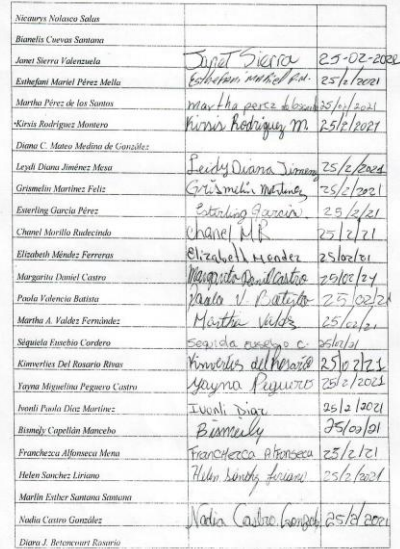 Nicaurys Nolasco Salas
Bianelis Cuevas Santana
Janet Sierra Valenzuela Janet Sierra 25-02-202
Esthefani Mariel Pérez Mella Esthefani Mariel P.M. 25/2/2021
Martha Pérez de los Santos martha perez 25/02/2021
Kirsis Rodríguez Montero Kirsis Rodríguez M. 25/2/2021
Diana C. Mateo Medina de González
Leydi Diana Jiménez Mesa Leidy Diana Jimenez 25/2/2021
Grismelin Martínez Feliz Grismelin Martinez 25/2/2021
Esterling García Pérez Esterling Garcia. 25/2/21
Chanel Morillo Rudecindo Chanel M R 25/2/21
Elizabeth Méndez Ferreras Elizabeth Mendez 25/02/21
Margarita Daniel Castro Margarita Daniel Castro 25/02/21
Paola Valencia Batista Paola V. Batista 25/02/21
Martha A. Valdez Fernández Martha Valdz 25/02/21
Séquiela Eusebio Cordero c. 25/2/21
Kimverlies Del Rosario Rivas Kimverlies del Rosario 25/02/21
Yayna Miguelina Peguero Castro Yayna Peguero 25/2/2021
Ivonli Paola Díaz Martínez Ivonli Diaz 25/2/2021
Bismejy Capellán Mancebo Bismely 25/02/21
Franchezca Alfonseca Mena Franchezca Alfonseca 25/2/21
Helen Sanchez Liriano Helen Sánchez Liriano 25/2/2021
Marlin Esther Santana Santana
Nadia Castro González Nadia Castro Gonzalez 25/2/2021
Diara J. Betancourt Rosario